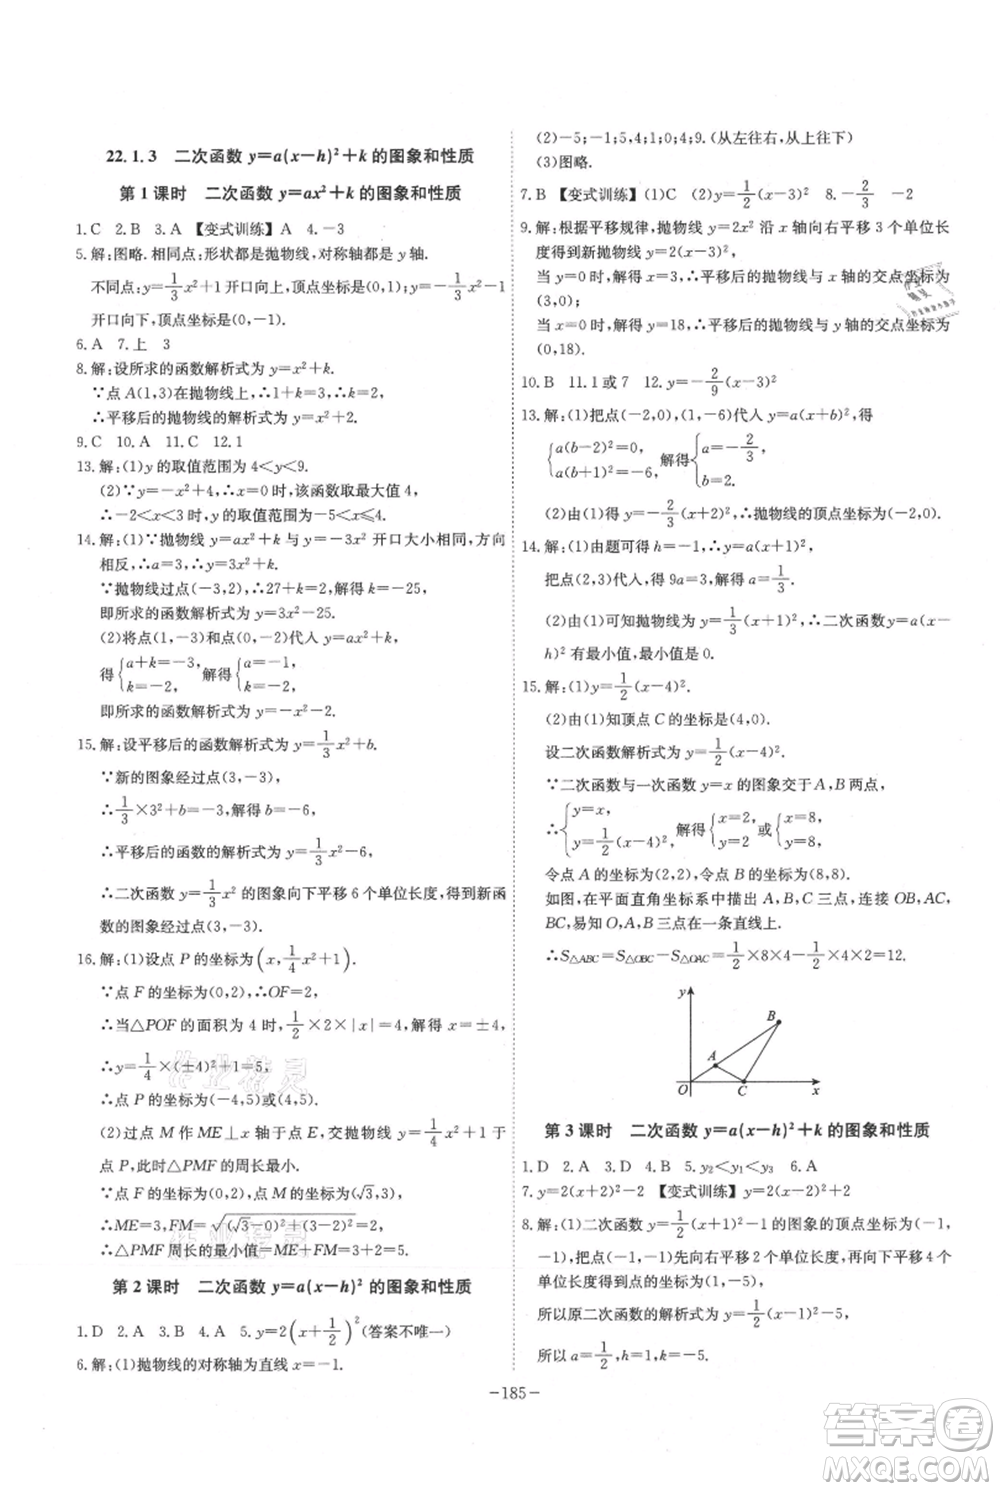 22.1.3 二次函数 y=a(x-h)²+k 的图象和性质
第 1 课时 二次函数 y=ax²+k 的图象和性质
1.C 2.B 3.A 【变式训练】A 4.-3
5.解:图略.相同点:形状都是抛物线,对称轴都是 y 轴.
不同点:y=1/3x²+1 开口向上,顶点坐标是(0,1);y=-1/3x²-1
开口向下,顶点坐标是(0,-1).
6.A 7.上 3
8.解:设所求的函数解析式为 y=x²+k.
∵点 A(1,3)在抛物线上,∴1+k=3,∴k=2,
∴平移后的抛物线的解析式为 y=x²+2.
9.C 10.A 11.C 12.1
13.解:(1)y 的取值范围为 4<y<9.
(2)∵y=-x²+4,∴x=0 时,该函数取最大值 4,
∴-2<x<3 时,y 的取值范围为-5<x≤4.
14.解:(1)∵抛物线 y=ax²+k 与 y=-3x² 开口大小相同,方向
相反,∴a=3,∴y=3x²+k.
∵抛物线过点(-3,2),∴27+k=2,解得 k=-25,
即所求的函数解析式为 y=3x²-25.
(2)将点(1,-3)和点(0,-2)代人 y=ax²+k,
得{a+k=-3, k=-2, 解得{a=-1, k=-2,
即所求的函数解析式为 y=-x²-2.
15.解:设平移后的函数解析式为 y=1/3x²+b.
∵新的图象经过点(3,-3),
∴1/3×3²+b=-3,解得 b=-6,
∴平移后的函数的解析式为 y=1/3x²-6,
∴二次函数 y=1/3x² 的图象向下平移 6 个单位长度,得到新函
数的图象经过点(3,-3).
16.解:(1)设点 P 的坐标为(x,1/4x²+1).
∵点 F 的坐标为(0,2),∴OF=2,
∴当△POF 的面积为 4 时,1/2×2×|x|=4,解得 x=±4,
∴y=1/4×(±4)²+1=5,
∴点 P 的坐标为(-4,5)或(4,5).
(2)过点 M 作 ME⊥x 轴于点 E,交抛物线 y=1/4x²+1 于
点 P,此时△PMF 的周长最小.
∵F(0,2),M(√3,3),
∴ME=3,FM=√(√3-0)²+(3-2)²=2,
∴△PMF 周长的最小值=ME+FM=3+2=5.
第 2 课时 二次函数 y=a(x-h)² 的图象和性质
1.D 2.A 3.A 4.A 5.y=2(x+1/2)²(答案不唯一)
6.解:(1)抛物线的对称轴为直线 x=-1.
(2)-5;-1;5;4;1;0;4;9.(从左往右,从上往下)
(3)图略.
7.B 【变式训练】(1)C (2)y=1/2(x+5)² 8.-2/3 -2
9.解:根据平移规律,抛物线 y=2x² 沿 x 轴方向向右平移 3 个单位长
度得到新抛物线 y=2(x-3)²,
当 y=0 时,x=3,∴平移后的抛物线与 x 轴的交点坐标为
(3,0);
当 x=0 时,y=18,∴平移后的抛物线与 y 轴的交点坐标为
(0,18).
10.B 11.1 或 7 12.y=-2/9(x-3)²
13.解:(1)把点(-2,0),(1,-6)代人 y=a(x+b)²,得
{a(b-2)²=0, a(b+1)²=-6, 解得{a=-2/3, b=2.
(2)由(1)得,y=-2/3(x+2)²,∴抛物线的顶点坐标为(-2,0).
14.解:(1)由题可得 h=-1,∴y=a(x+1)²,
把点(2,3)代人,得 9a=3,解得 a=1/3.
(2)由(1)可知抛物线为 y=1/3(x+1)²,∴二次函数 y=a(x-
h)² 有最小值,最小值是 0.
15.解:(1)y=1/2(x-4)².
(2)由(1)知顶点 C 的坐标是(4,0).
设二次函数解析式为 y=1/2(x-4)².
∵二次函数与一次函数 y=x 的图象交于 A,B 两点,
∴{y=x, y=1/2(x-4)², 解得{x=2, y=2 或{x=8, y=8,
令点 A 的坐标为(2,2),令点 B 的坐标为(8,8).
如图,在平面直角坐标系中描出 A,B,C 三点,连接 OB,AC,
BC,易知 O,A,B 三点在一条直线上.
∴S△ABC=S△OBC-S△OAC=1/2×8×4-1/2×4×2=12.
y
B
A
O
C
x
第 3 课时 二次函数 y=a(x-h)²+k 的图象和性质
1.D 2.A 3.D 4.C 5.y₂<y₁<y₃ 6.A
7.y=2(x+2)²-2 【变式训练】y=2(x-2)²+2
8.解:(1)二次函数 y=1/2(x+1)²-1 的图象的顶点坐标为(-1,
-1),把点(-1,-1)先向右平移 2 个单位长度,再向下平移 4
个单位长度得到点的坐标为(1,-5),
所以原二次函数的解析式为 y=1/2(x-1)²-5,
所以 a=1/2,h=1,k=-5.
-185-
作业精灵
作业精灵
答案卷
MXQE.COM